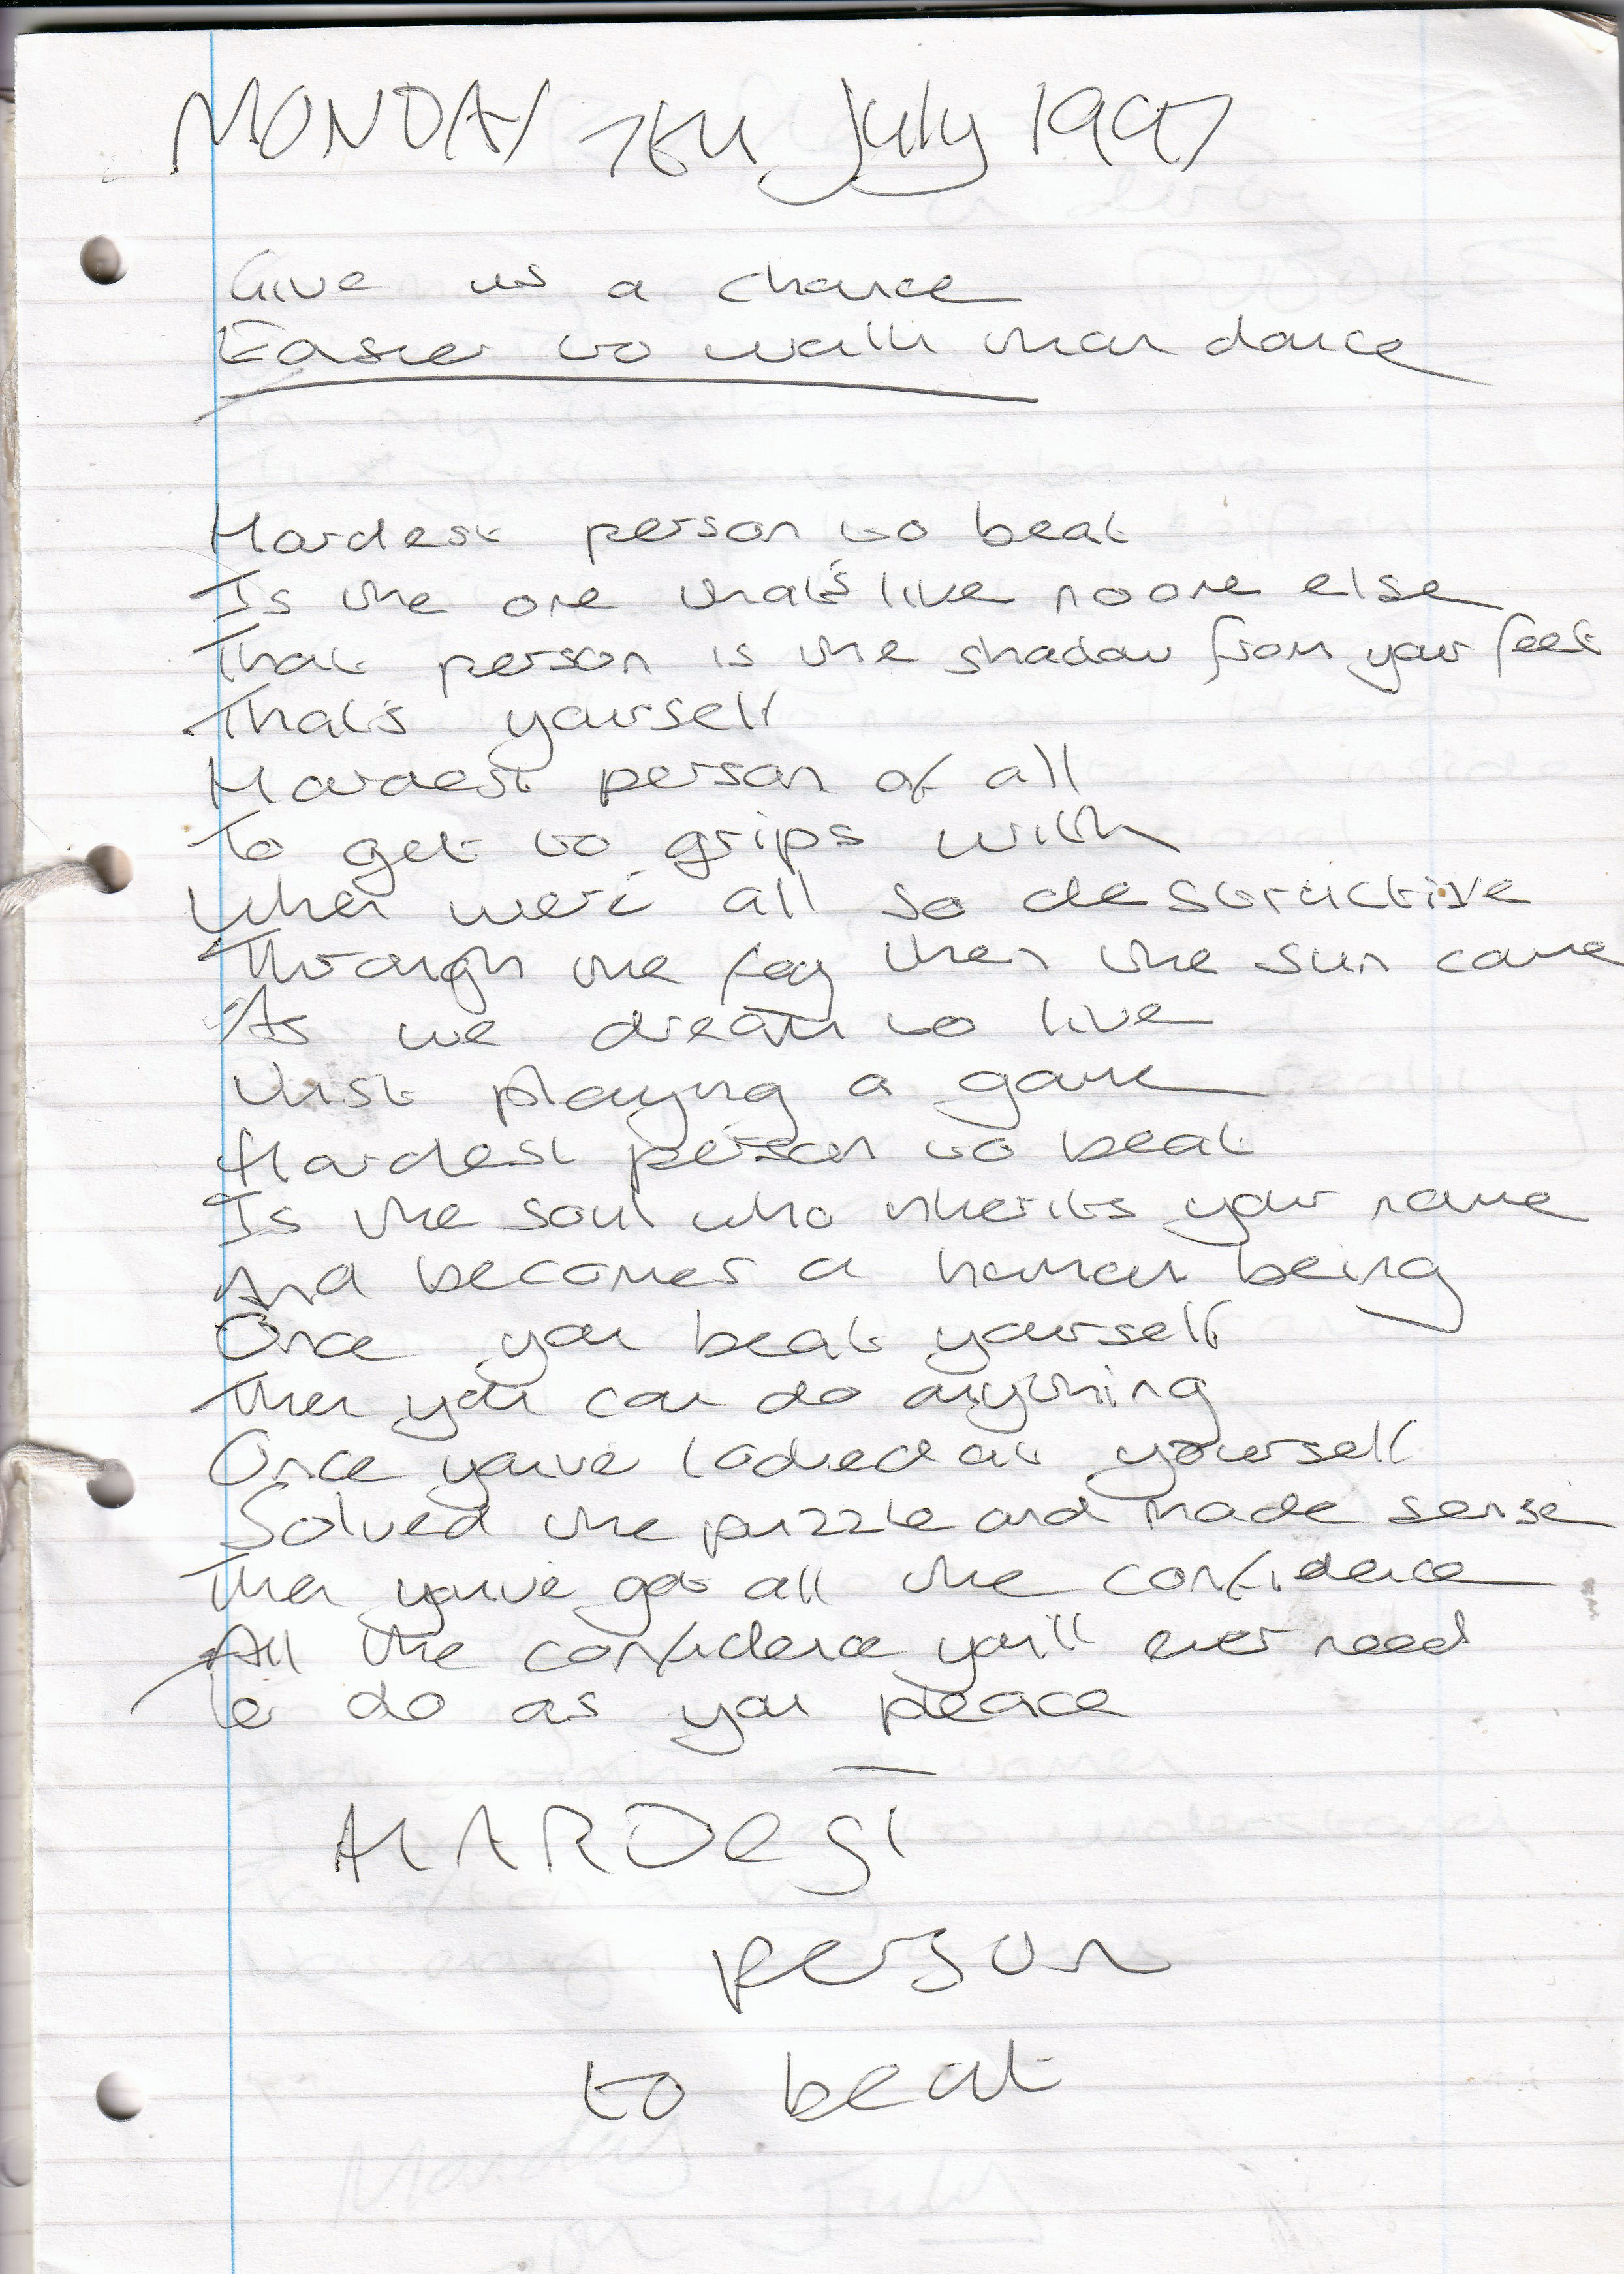 MONDAY 7th July 1997
Give us a chance
Easier to walk than dance
Hardest person to beat
Is the one that's like noone else
That person is the shadow from your feet
That's yourself
Hardest person of all
To get to grips with
When we're all so destructive
Through the fog then the sun came
As we dream to live
Just playing a game
Hardest person to beat
Is the soul who inherits your name
And becomes a human being
Once you beat yourself
Then you can do anything
Once you've looked at yourself
Solved the puzzle and made sense
Then you've got all the confidence
All the confidence you'll ever need
To do as you pleace
HARDEST
person
to beat